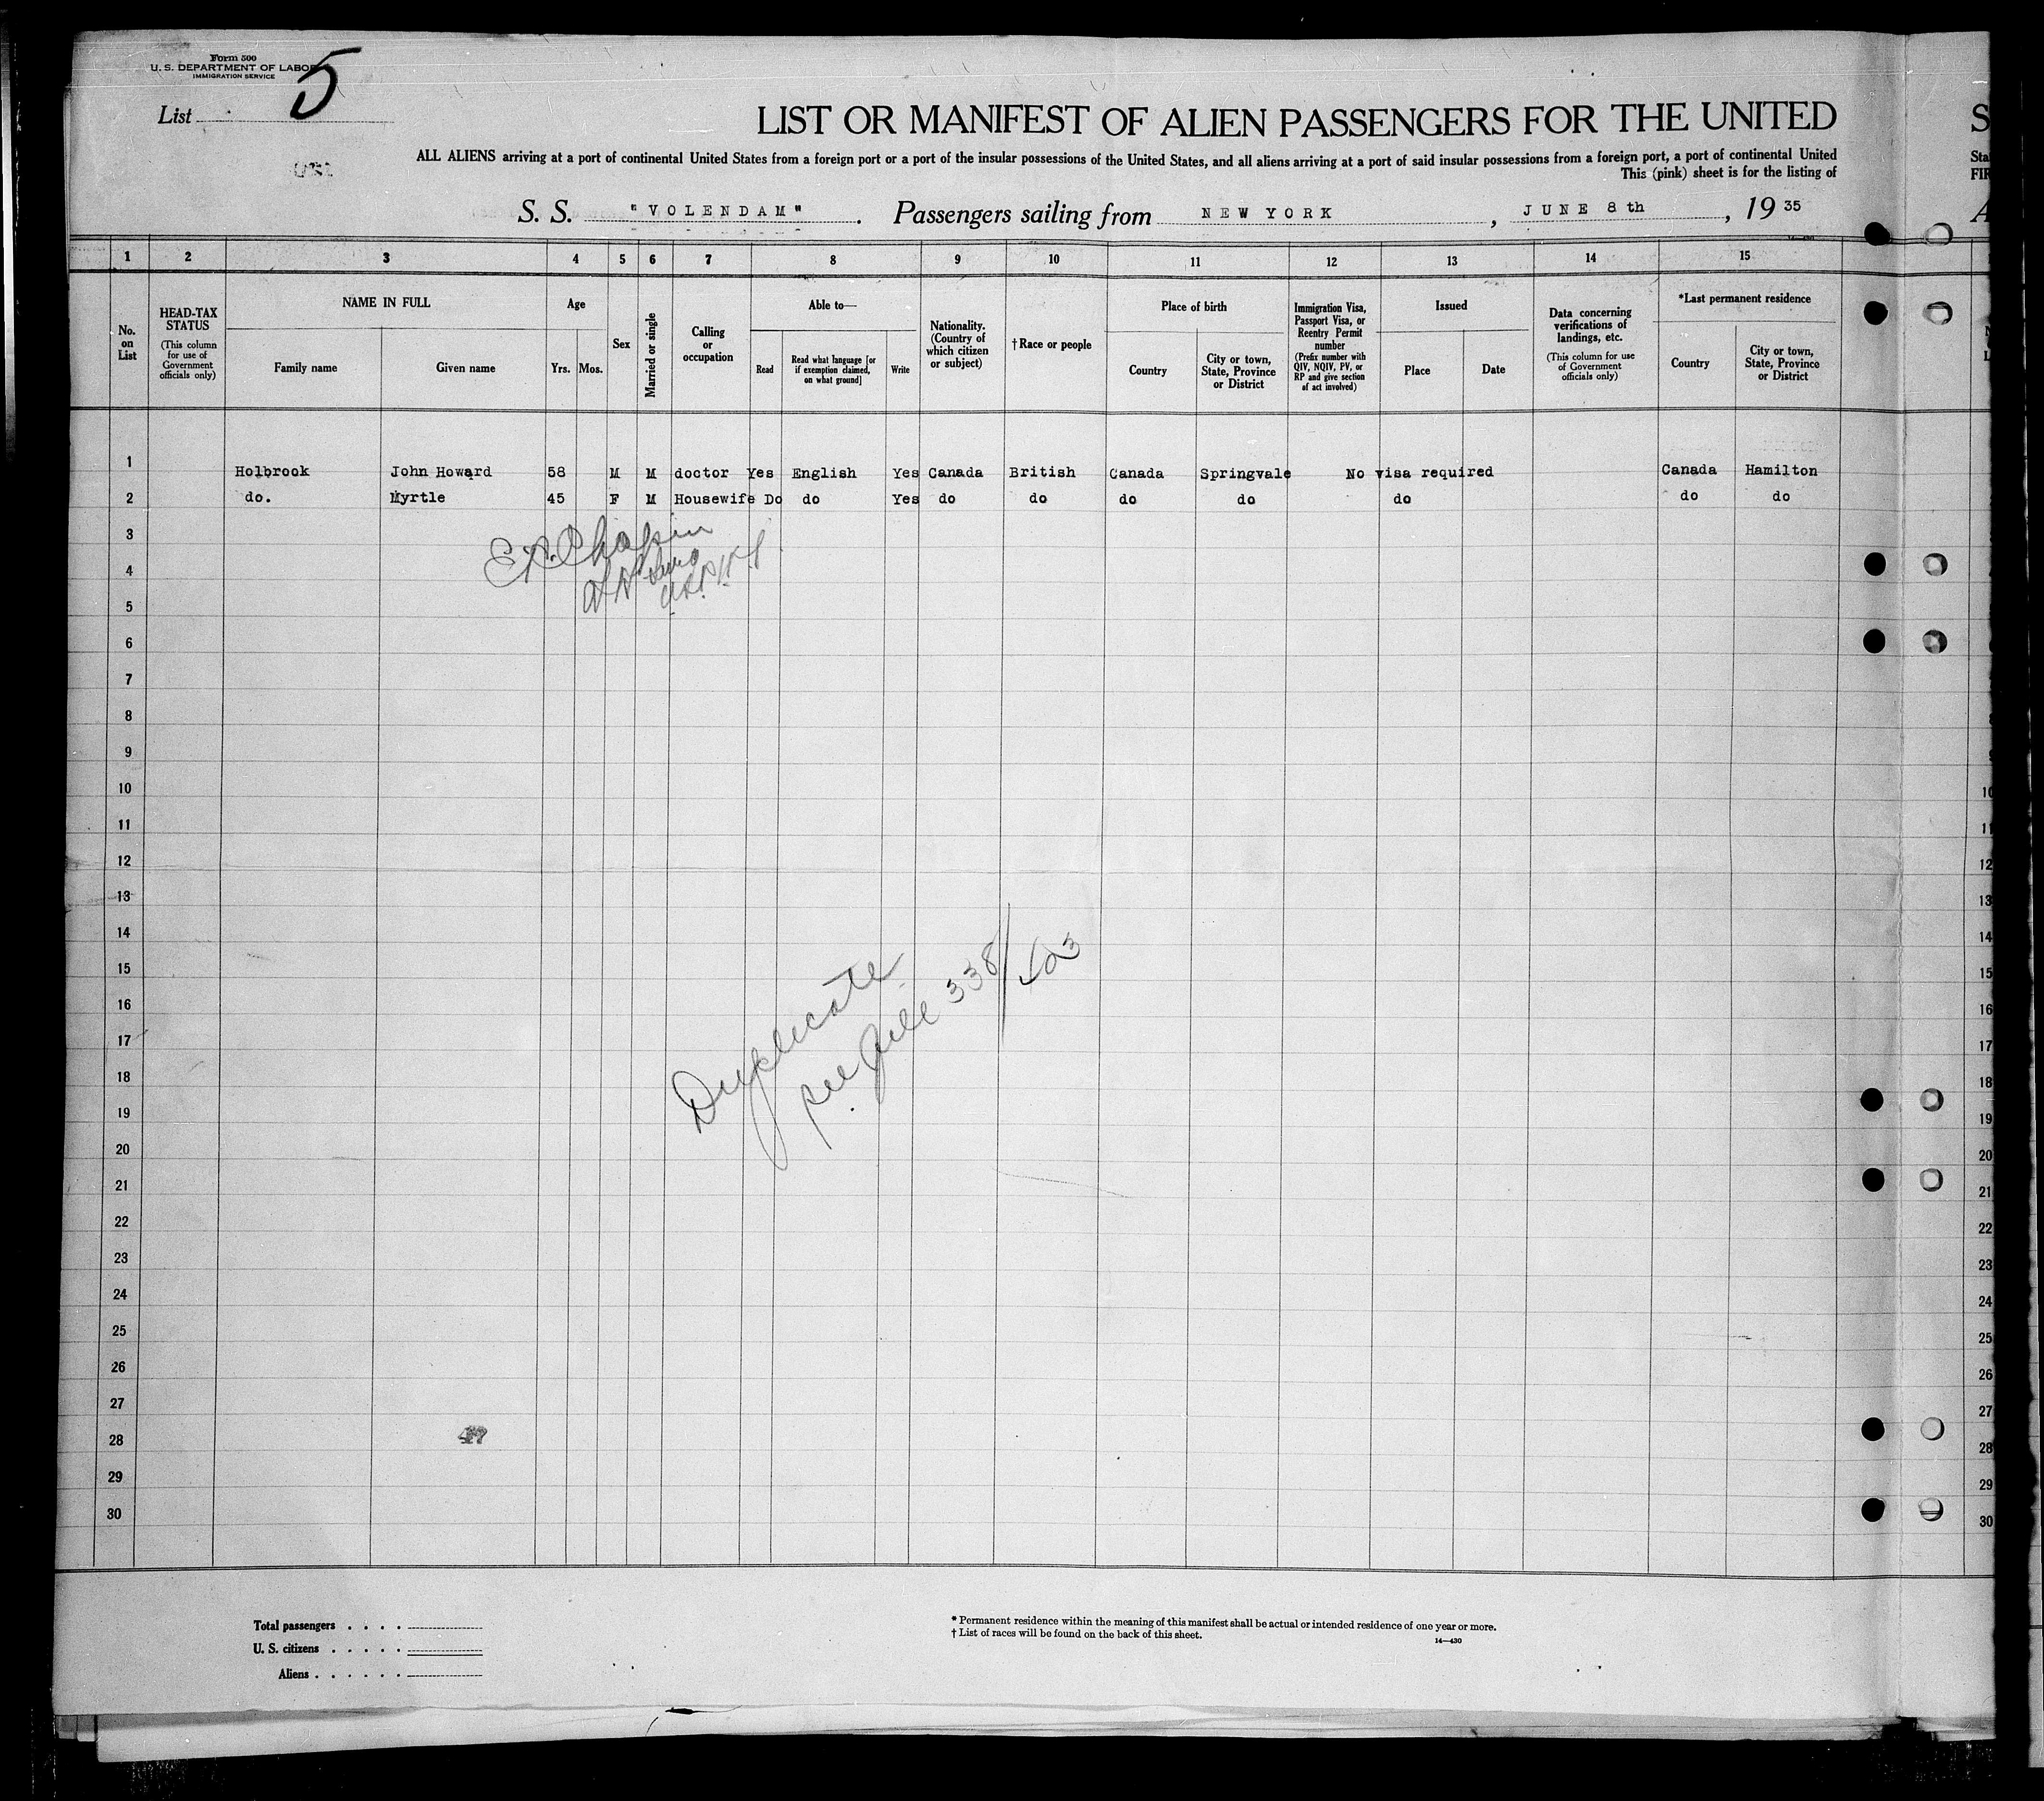 Form 500
U. S. DEPARTMENT OF LABOR
IMMIGRATION SERVICE
List 5
LIST OR MANIFEST OF ALIEN PASSENGERS FOR THE UNITED
ALL ALIENS arriving at a port of continental United States from a foreign port or a port of the insular possessions of the United States, and all aliens arriving at a port of said insular possessions from a foreign port, a port of continental United
This (pink) sheet is for the listing of
S. S. "VOLENDAM". Passengers sailing from NEW YORK, JUNE 8th, 1935
1 2 3 4 5 6 7 8 9 10 11 12 13 14 15
No. on List
HEAD-TAX STATUS (This column for use of Government officials only)
NAME IN FULL Family name Given name
Age Yrs. Mos.
Sex
Married or single
Calling or occupation
Able to— Read Read what language [or if exemption claimed, on what ground] Write
Nationality. (Country of which citizen or subject)
† Race or people
Place of birth Country City or town, State, Province or District
Immigration Visa, Passport Visa, or Reentry Permit number (Prefix number with QIV, NQIV, PV, or RP and give section of act involved)
Issued Place Date
Data concerning verifications of landings, etc. (This column for use of Government officials only)
*Last permanent residence Country City or town, State, Province or District
1 Holbrook John Howard 58 M M doctor Yes English Yes Canada British Canada Springvale No visa required Canada Hamilton
2 do. Myrtle 45 F M Housewife Do do Yes do do do do do do do
3
4
5
6
7
8
9
10
11
12
13
14
15
16
17
18
19
20
21
22
23
24
25
26
27
28
29
30
Chapin
Duplicate
see file 338/
Total passengers . . . .
U. S. citizens . . . . .
Aliens . . . . . .
* Permanent residence within the meaning of this manifest shall be actual or intended residence of one year or more.
† List of races will be found on the back of this sheet.
14—430